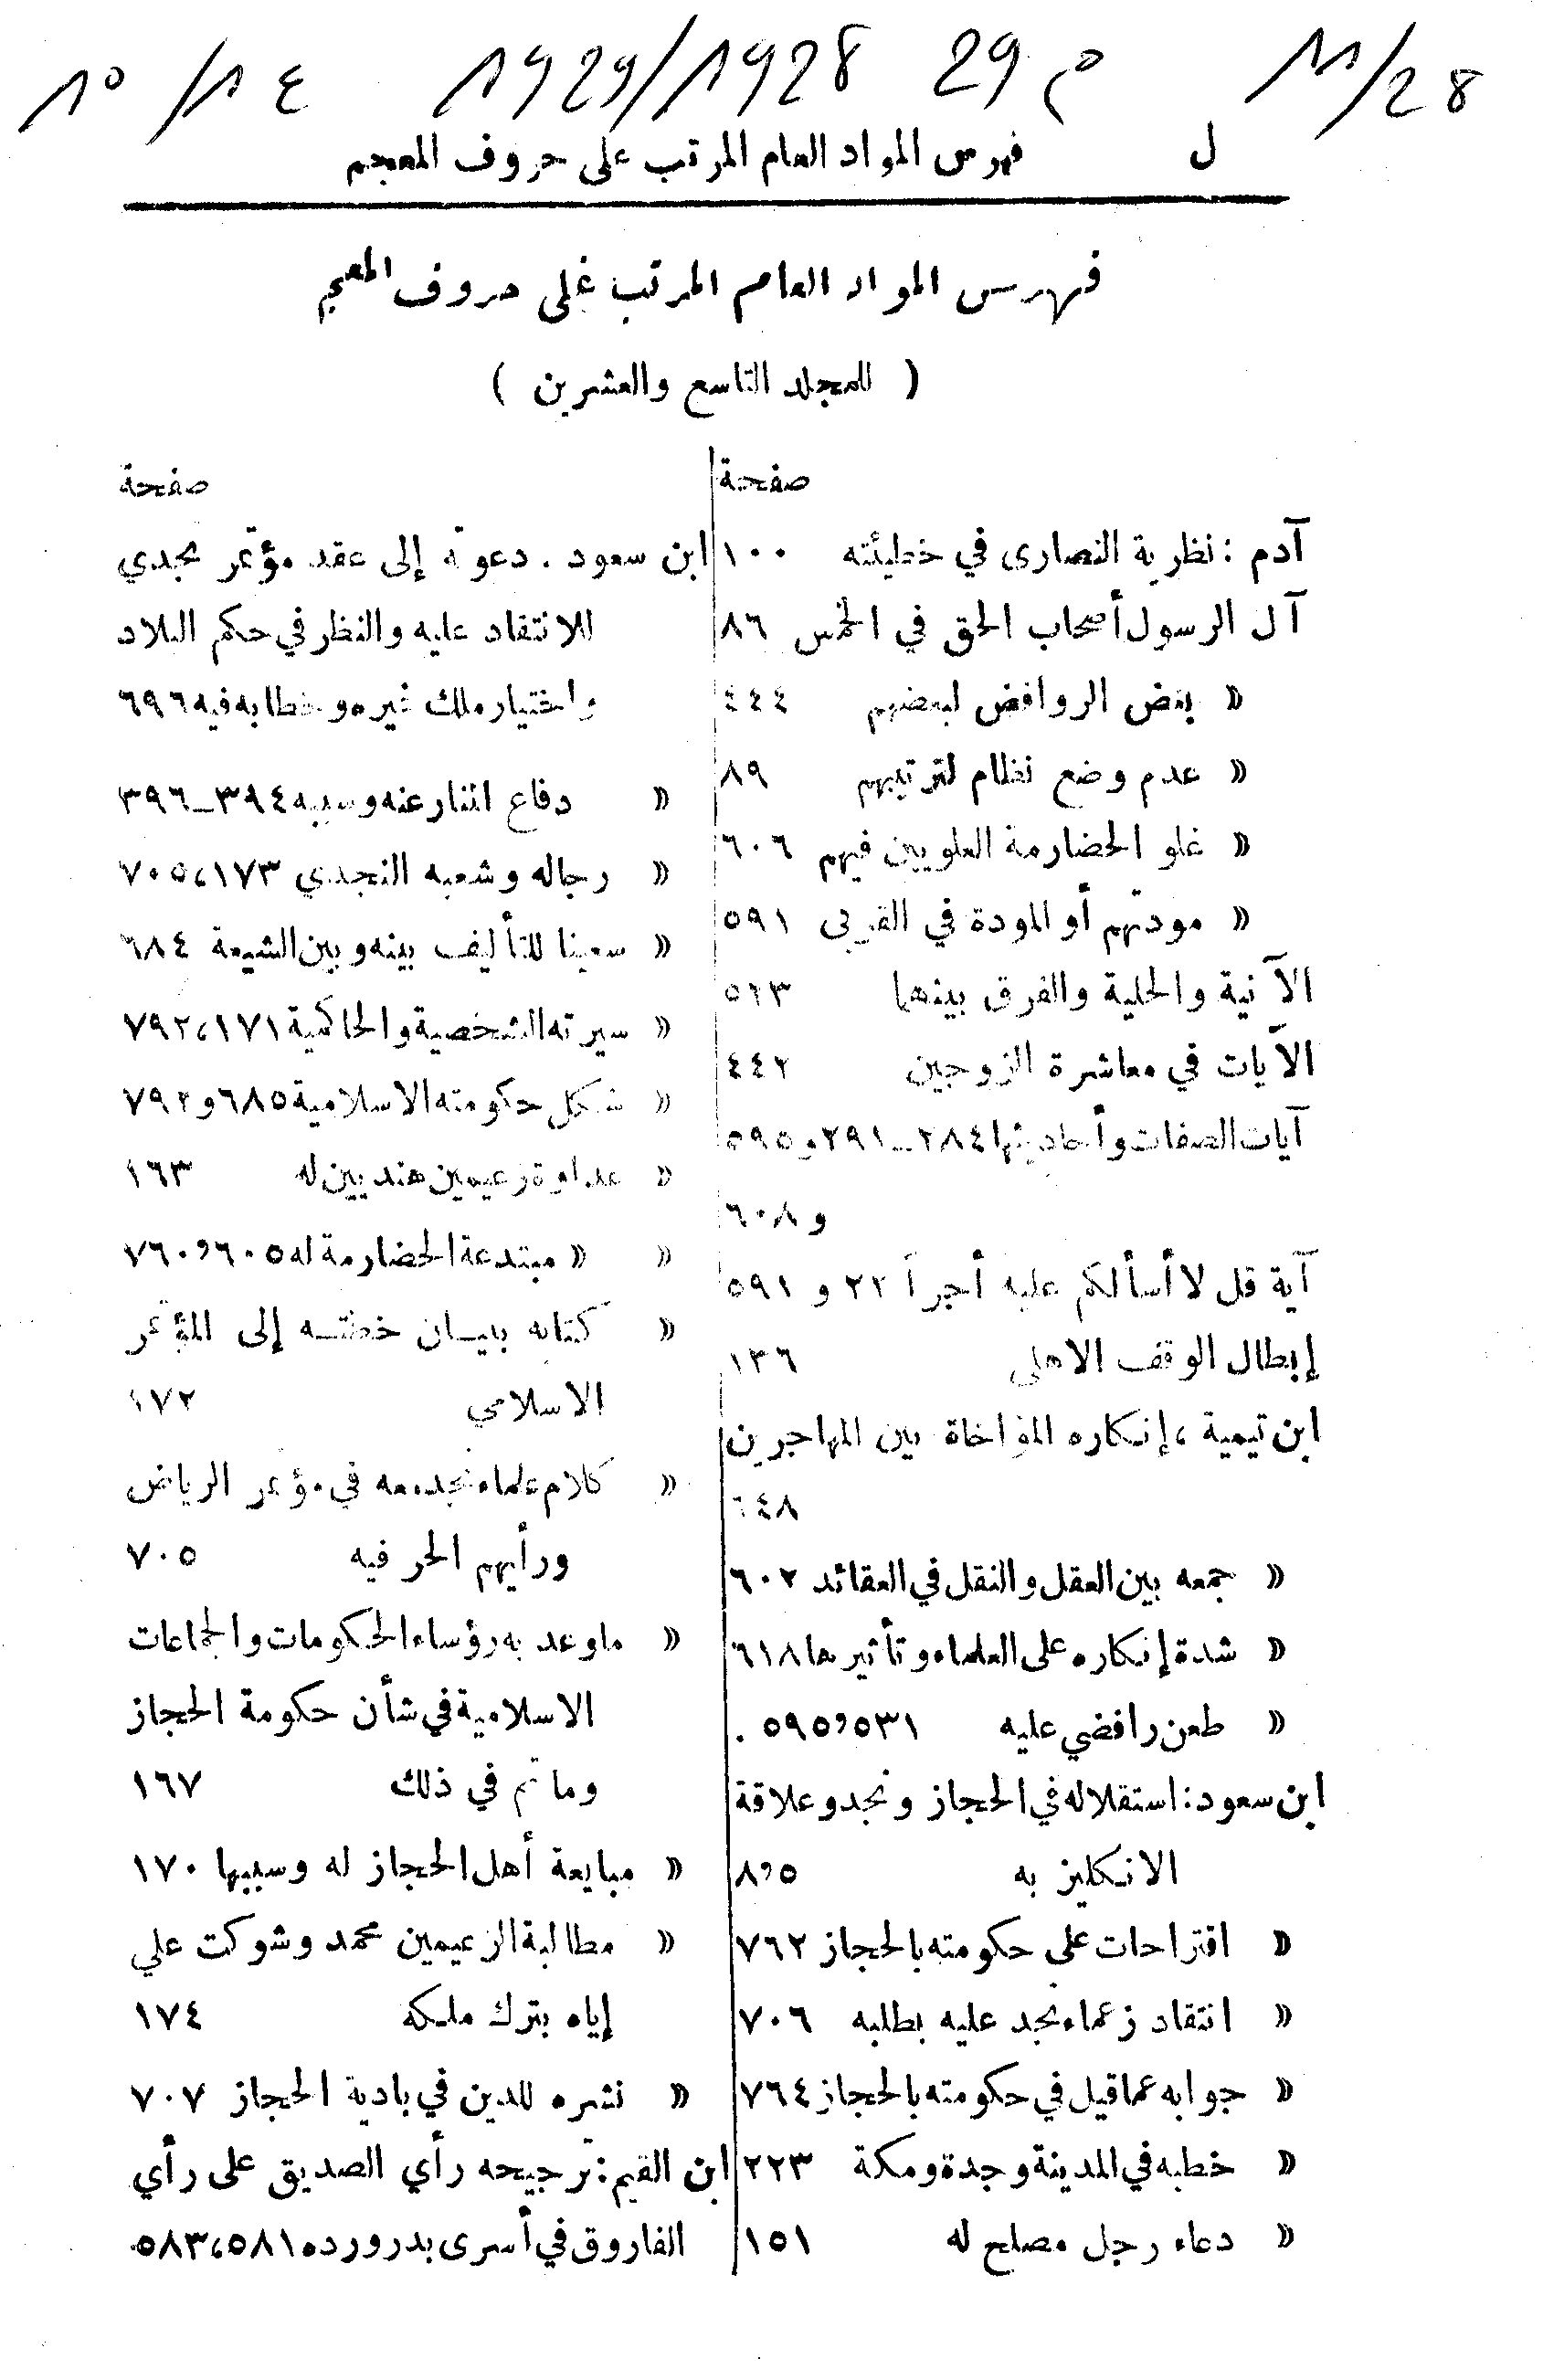 11/28 م 29 1928/1929 ١٤/ ١٥
ل فهرس المواد العام المرتب على حروف المعجم
فهرس المواد العام المرتب على حروف المعجم
( للمجلد التاسع والعشرين )
صفحة
آدم : نظرية النصارى في خطيئته ١٠٠
آل الرسول أصحاب الحق في الخمس ٨٦
« بغض الروافض لبعضهم ٤٤٤
« عدم وضع نظام لترتيبهم ٨٩
« غلو الحضارمة العلويين فيهم ٦٠٦
« مودتهم أو المودة في القربى ٥٩١
الآنية والحلية والفرق بينهما ٥٦٣
الآيات في معاشرة الزوجين ٤٤٢
آيات الصفات وأحاديثها ٢٨٤ ــ ٢٩١ و ٥٩٥
و ٦٠٨
آية قل لا أسألكم عليه أجراً ٢٢ و ٥٩١
إبطال الوقف الاهلي ١٣٦
ابن تيمية ، إنكاره المؤاخاة بين المهاجرين
٦٤٨
« جمعه بين العقل والنقل في العقائد ٦٠٢
« شدة إنكاره على العلماء وتأثيرها ٦١٨
« طعن رافضي عليه ٥٣١ و ٥٩٥ .
ابن سعود : استقلاله في الحجاز ونجد وعلاقة
الانكليز به ٥ و ٨
« اقتراحات على حكومته بالحجاز ٧٦٢
« انتقاد زعماء نجد عليه بطلبه ٧٠٦
« جوابه عما قيل في حكومته بالحجاز ٧٦٤
« خطبه في المدينة وجدة ومكة ٢٢٣
« دعاء رجل مصلح له ١٥١
صفحة
ابن سعود . دعوته إلى عقد مؤتمر نجدي
للانتقاد عليه والنظر في حكم البلاد
واختيار ملك غيره وخطابه فيه ٦٩٦
« دفاع المنار عنه وسببه ٣٩٤ ــ ٣٩٦
« رجاله وشعبه النجدي ١٧٣ ، ٧٠٥
« سعينا للتأليف بينه وبين الشيعة ٦٨٤
« سيرته الشخصية والحاكمية ١٧١ ، ٧٩٢
« شكل حكومته الاسلامية ٦٨٥ و ٧٩٢
« عداوة زعيمين هنديين له ١٦٣
« « مبتدعة الحضارمة له ٦٠٥ و ٧٦٠
« كتابه ببيان خطته إلى المؤتمر
الاسلامي ١٧٢
« كلام علماء نجد معه في مؤتمر الرياض
ورأيهم الحر فيه ٧٠٥
« ما وعد به رؤساء الحكومات والجماعات
الاسلامية في شأن حكومة الحجاز
وما تم في ذلك ١٦٧
« مبايعة أهل الحجاز له وسببها ١٧٠
« مطالبة الزعيمين محمد وشوكت علي
إياه بترك ملكه ١٧٤
« نشره للدين في بادية الحجاز ٧٠٧
ابن القيم : ترجيحه رأي الصديق على رأي
الفاروق في أسرى بدر ورده ٥٨١ ، ٥٨٣